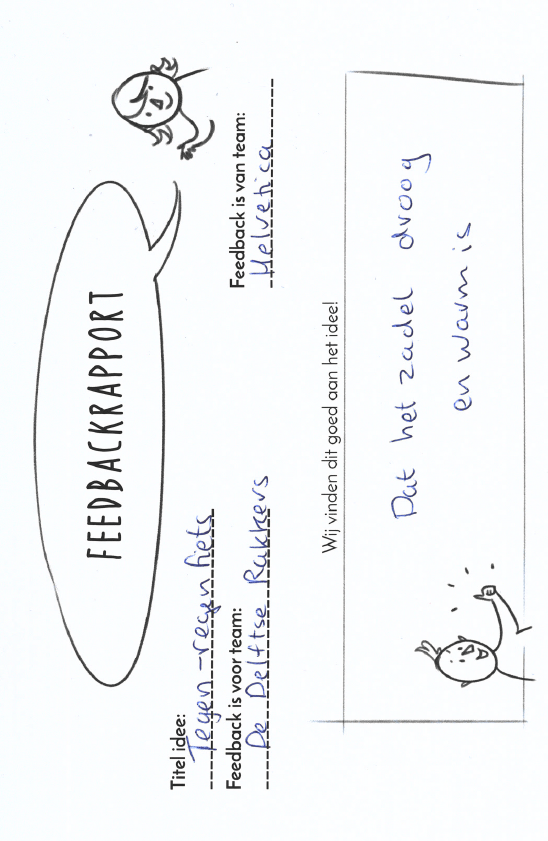 FEEDBACKRAPPORT
Titel idee:
Tegen-regenfiets
Feedback is voor team:
De Delftse Rakkers
Feedback is van team:
Helvetica
Wij vinden dit goed aan het idee!
Dat het zadel droog
en warm is